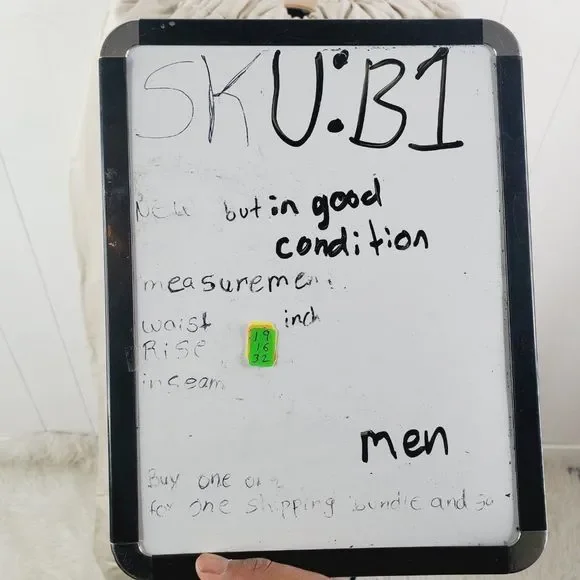 SKU:B1
New but in good
condition
measuremen
waist inch
Rise
inseam
19
16
32
men
Buy one or
for one shipping bundle and